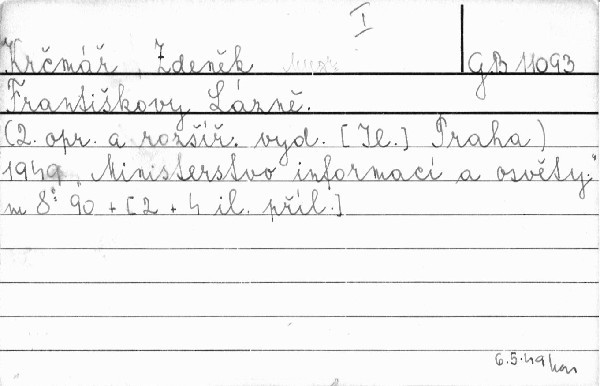 I
Krčmář, Zdeněk
GB 11093
Františkovy Lázně.
(2. opr. a rozšíř. vyd. [Il.] Praha)
1949 „Ministerstvo informací a osvěty."
m 8° 90 + [2 + 4 il. příl.]
6.5.49